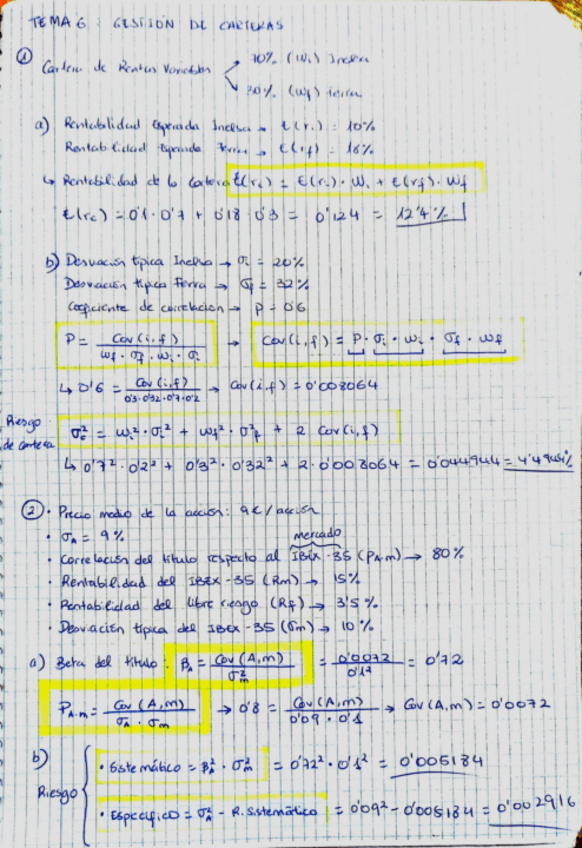 TEMA 6: GESTIÓN DE CARTERAS
① Cartera de Rentas Variables
70% (Wi) Inelsa
30% (Wf) Ferra
a) Rentabilidad Esperada Inelsa → E(ri) = 10%
Rentabilidad Esperada Ferra → E(rf) = 18%
↳ Rentabilidad de la Cartera E(rc) = E(ri) · Wi + E(rf) · Wf
E(rc) = 0'1 · 0'7 + 0'18 · 0'3 = 0'124 = 12'4%
b) Desviación típica Inelsa → σi = 20%
Desviación típica Ferra → σf = 32%
Coeficiente de correlación → P = 0'6
P = Cov(i,f) / wf · σf · wi · σi → Cov(i,f) = P · σi · wi · σf · wf
↳ 0'6 = Cov(i,f) / 0'3·0'32·0'7·0'2 → Cov(i,f) = 0'008064
Riesgo de cartera σc² = wi² · σi² + wf² · σf² + 2 Cov(i,f)
↳ 0'7² · 0'2² + 0'3² · 0'32² + 2 · 0'008064 = 0'044944 = 4'4944%
② · Precio medio de la acción: 9€/acción
· σA = 9%
mercado
· Correlación del título respecto al IBEX-35 (PA·m) → 80%
· Rentabilidad del IBEX-35 (Rm) → 15%
· Rentabilidad del libre riesgo (Rf) → 3'5%
· Desviación típica del IBEX-35 (σm) → 10%
a) Beta del título: βA = Cov(A,m) / σm² = 0'0072 / 0'1² = 0'72
PA·m = Cov(A,m) / σA · σm → 0'8 = Cov(A,m) / 0'09 · 0'1 → Cov(A,m) = 0'0072
b) Riesgo
· Sistemático = βA² · σm² = 0'72² · 0'1² = 0'005184
· Específico = σA² - R. Sistemático = 0'09² - 0'005184 = 0'002916